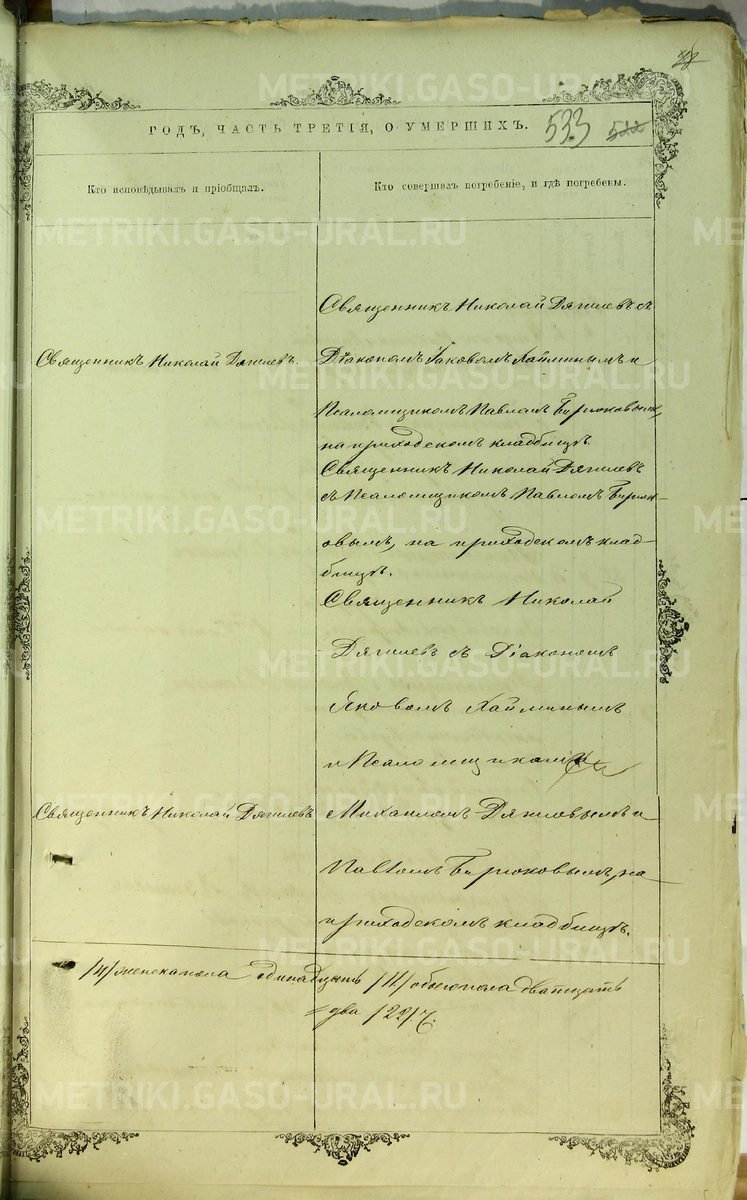 ГОДЪ, ЧАСТЬ ТРЕТІЯ, О УМЕРШИХЪ.
533
Кто исповѣдывалъ и пріобщалъ.
Кто совершалъ погребеніе, и гдѣ погребены.
Священникъ Николай Дягилевъ съ
Священникъ Николай Дягилевъ.
Діакономъ Іаковомъ Хайминымъ и
Псаломщикомъ Павломъ Бирюковымъ,
на приходскомъ кладбищѣ.
Священникъ Николай Дягилев
съ Псаломщикомъ Павломъ Бирюк-
овымъ, на приходскомъ клад-
бищѣ.
Священникъ Николай
Дягилевъ съ Діакономъ
Яковомъ Хайминымъ
и Псаломщиками
Священникъ Николай Дягилевъ
Михаиломъ Дягилевымъ и
Павломъ Бирюковымъ, на
приходскомъ кладбищѣ.
женска пола одинадцать /11/ обоего пола дватцать
два /22/.
METRIKI.GASO-URAL.RU